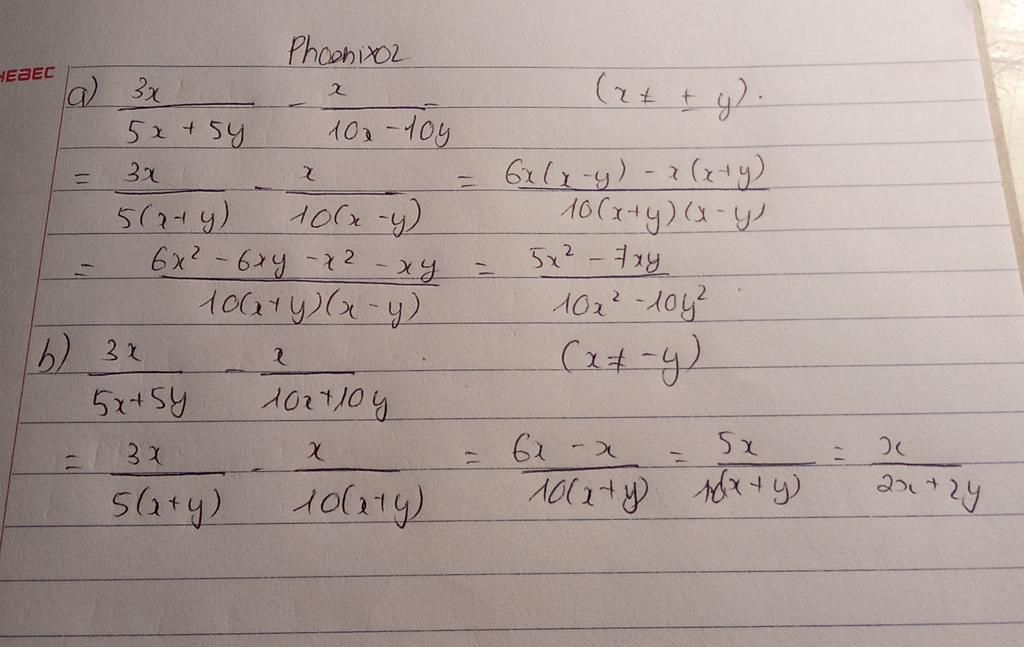 Phoenixoz
HEBEC
a) 3x/(5x + 5y) - x/(10x - 10y) (x ≠ ± y).
= 3x/(5(x+y)) - x/(10(x - y)) = (6x(x-y) - x(x+y))/(10(x+y)(x-y))
= (6x² - 6xy - x² - xy)/(10(x+y)(x-y)) = (5x² - 7xy)/(10x² - 10y²)
b) 3x/(5x+5y) - x/(10x+10y) (x ≠ -y)
= 3x/(5(x+y)) - x/(10(x+y)) = (6x - x)/(10(x+y)) = 5x/(10(x+y)) = x/(2x+2y)